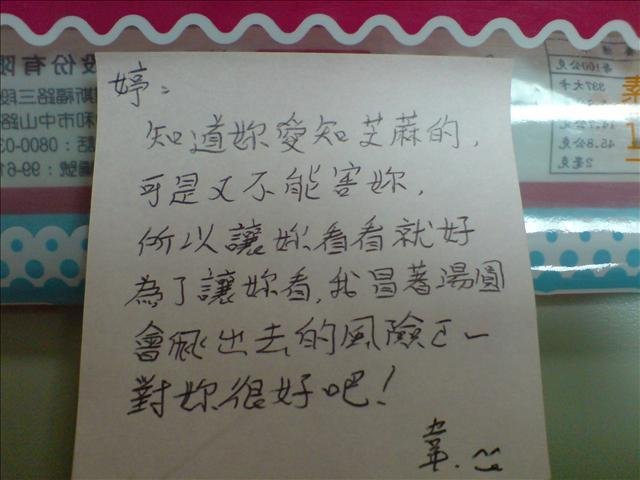 婷：
知道妳愛知芝蔴的，
可是又不能害妳，
所以讓妳看看就好
為了讓妳看，我冒著湯圓
會飛出去的風險ㄛㄧ
對妳很好吧！
韋.
股份有限
斯福路三段
和市中山路
話：0800-03
編號：99-61
每100公克
337大卡
45.8公克
2毫克